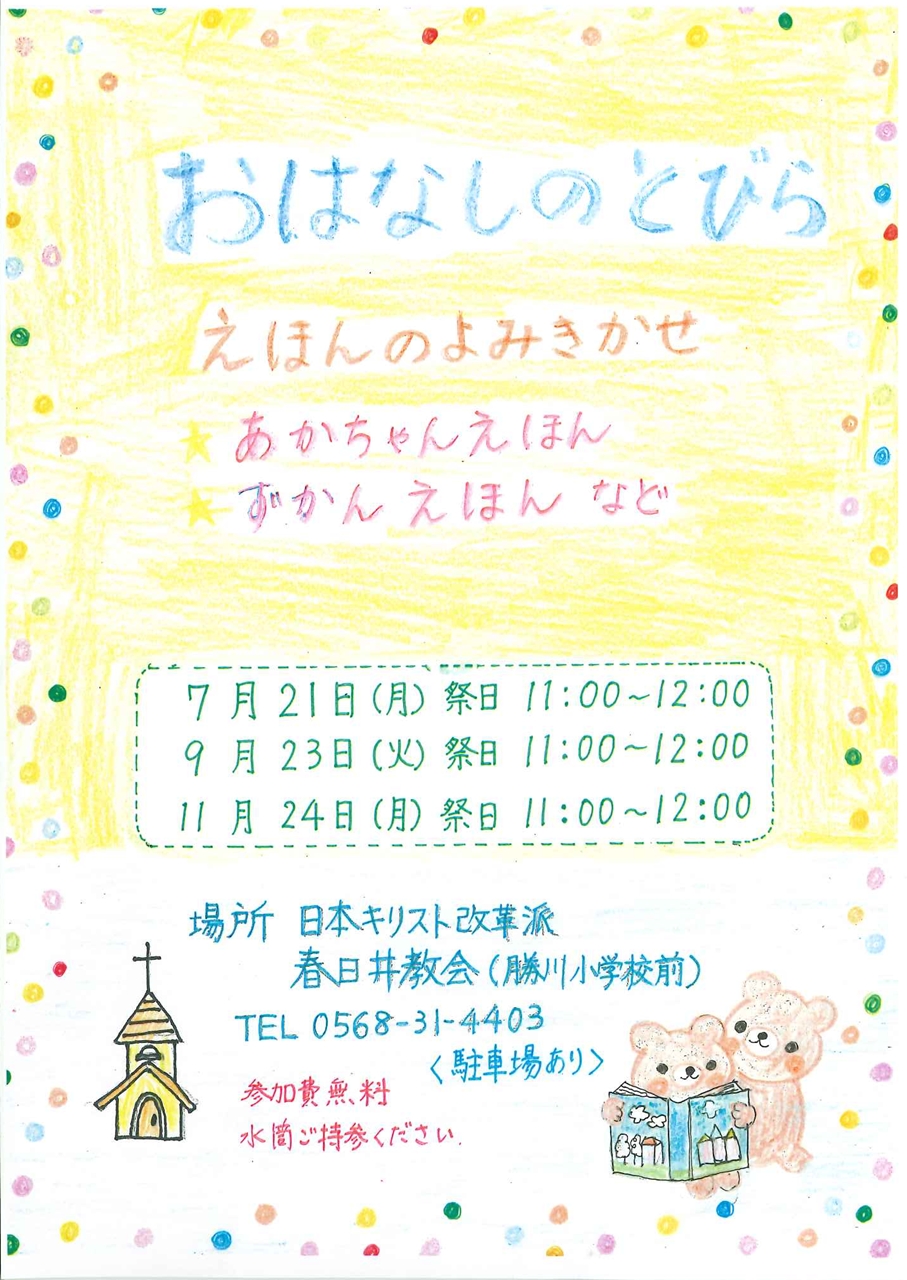 おはなしのとびら
えほんのよみきかせ
★ あかちゃんえほん
★ ずかん えほん など
7月21日(月)祭日 11:00~12:00
9月23日(火)祭日 11:00~12:00
11月24日(月)祭日 11:00~12:00
場所 日本キリスト改革派
春日井教会(勝川小学校前)
TEL 0568-31-4403
〈駐車場あり〉
参加費無料
水筒ご持参ください.